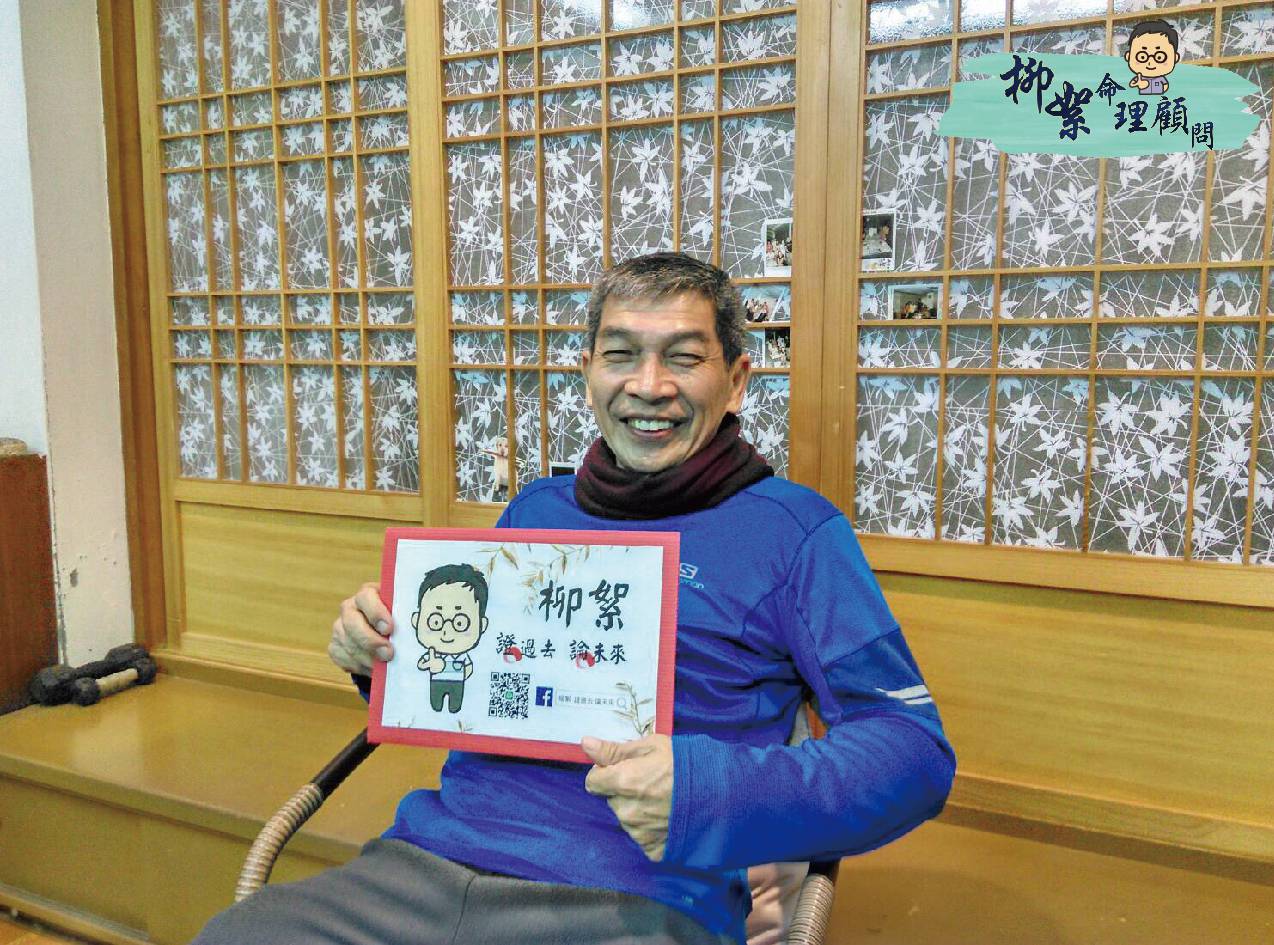 柳絮命理顧問
柳絮
證過去 論未來
f 柳絮 證過去 論未來
S